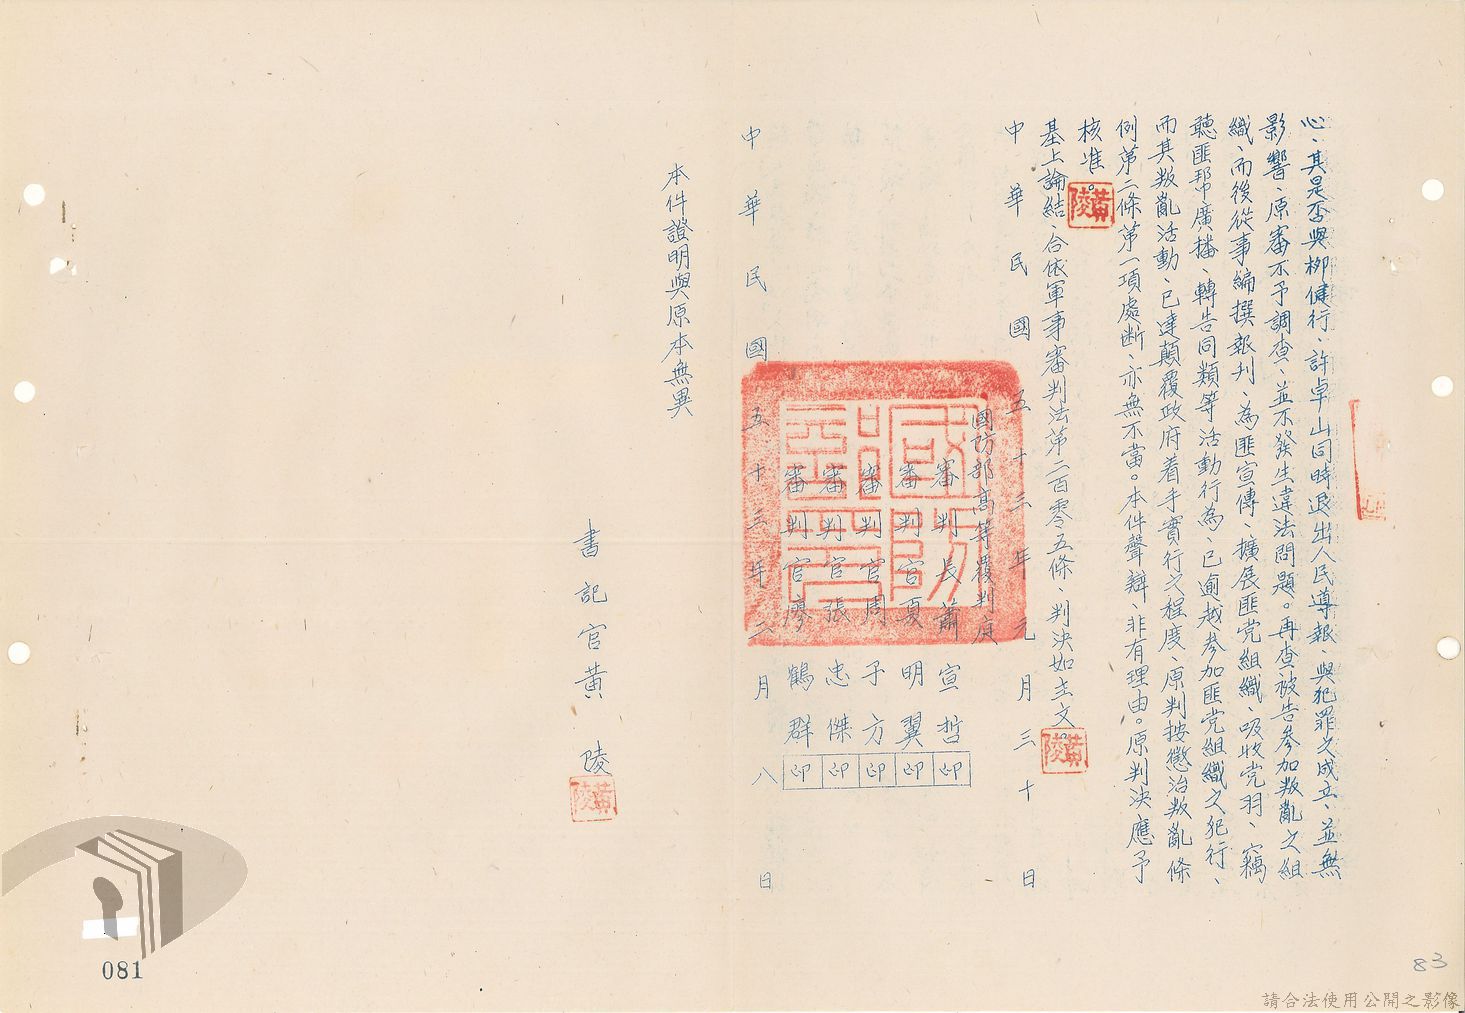 心、其是否與柳健行、許卓山同時退出人民導報、與犯罪之成立、並無
影響、原審不予調查、並不發生違法問題。再查被告參加叛亂之組
織、而後從事編撰報刊、為匪宣傳、擴展匪党組織、吸收党羽、竊
聽匪幇廣播、轉告同類等活動行為、已逾越參加匪党組織之犯行、
而其叛亂活動、已達顛覆政府着手實行之程度、原判按懲治叛亂條
例第二條第一項處断、亦無不當。本件聲辯、非有理由。原判決應予
核准。
黃陵
基上論結、合依軍事審判法第二百零五條、判決如主文。
黃陵
中華民國五十三年元月三十日
國防部高等覆判庭
審判長蕭宣哲印
審判官夏明翼印
審判官周子方印
審判官張忠傑印
審判官廖鶴群印
中華民國五十三年二月八日
本件證明與原本無異
書記官黃陵
黃陵
081
83
請合法使用公開之影像